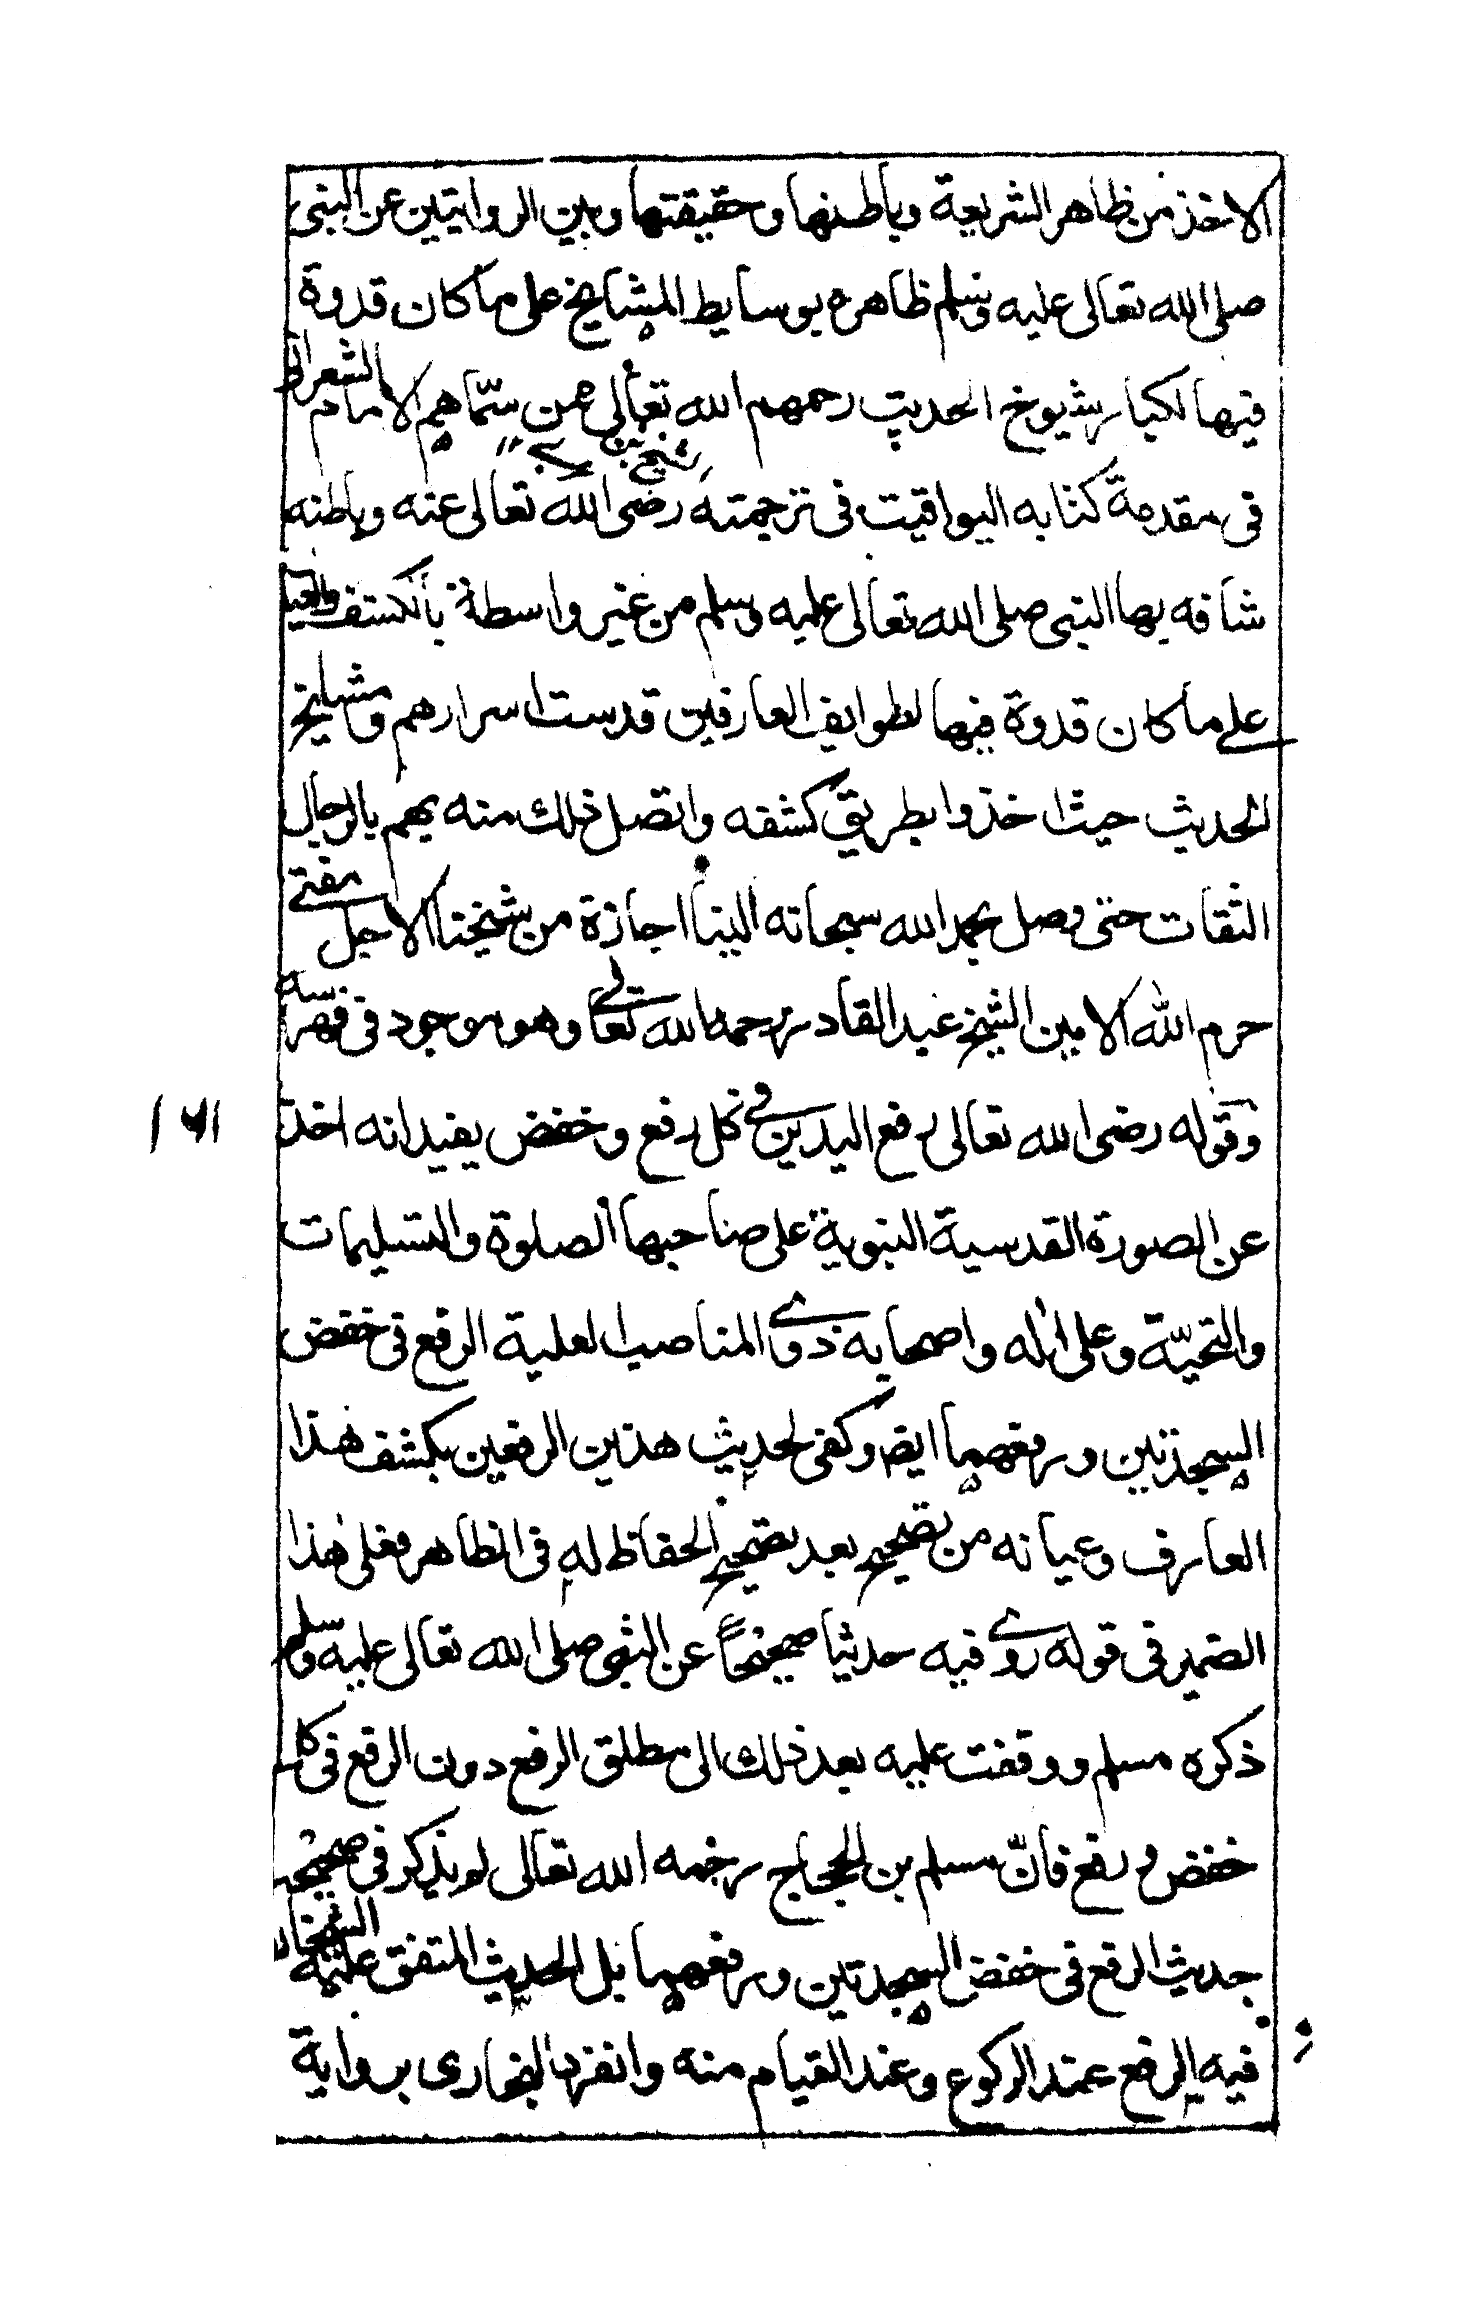 الاخذ من ظاهر الشريعة وباطنها وحقيقتها وبين الروايتين عن النبى
صلى الله تعالى عليه وسلم ظاهره بوسايط المشايخ على ما كان قدوة
فيها لكبار شيوخ الحديث رحمهم الله تعالى عمن سمّاهم الامام الشعرانى
فى مقدمة كتابه اليواقيت فى ترجمته رضى الله تعالى عنه وباطنه
شافه بها النبى صلى الله تعالى عليه وسلم من غير واسطة بالكشف والعيا
على ما كان قدوة فيها لطوايف العارفين قدست اسرارهم ومشايخ
الحديث حيث اخذوا بطريق كشفه واتصل ذلك منه بهم بالرجال
الثقات حتى وصل بحمد الله سبحانه الينا اجازة من شيخنا الاجل مفتى
حرم الله الامين الشيخ عبد القادر رحمه الله تعالى وهو موجود فى فهرسه
وقوله رضى الله تعالى رفع اليدين فى كل رفع وخفض يفيد انه اخذ
١٦١
عن الصورة القدسية النبوية على صاحبها الصلوة والتسليمات
والتحيّة وعلى اله واصحابه ذوى المناصب العلية الرفع فى خفض
السجدتين ورفعهما ايضا وكفى لحديث هذين الرفعين بكشف هذا
العارف وعيانه من تصحيح بعد تصحيح الحفاظ له فى الظاهر فعلى هذا
الضمير فى قوله روى فيه حديثا صحيحاً عن النبى صلى الله تعالى عليه وسلم
ذكره مسلم ووقفت عليه بعد ذلك الى مطلق الرفع دون الرفع فى كل
خفض ورفع فانّ مسلم بن الحجاج رحمه الله تعالى لم يذكر فى صحيحه
حديث الرفع فى خفض السجدتين ورفعهما بل الحديث المتفق عليه الشيخان
فيه الرفع عند الركوع وعند القيام منه وانفرد البخارى برواية